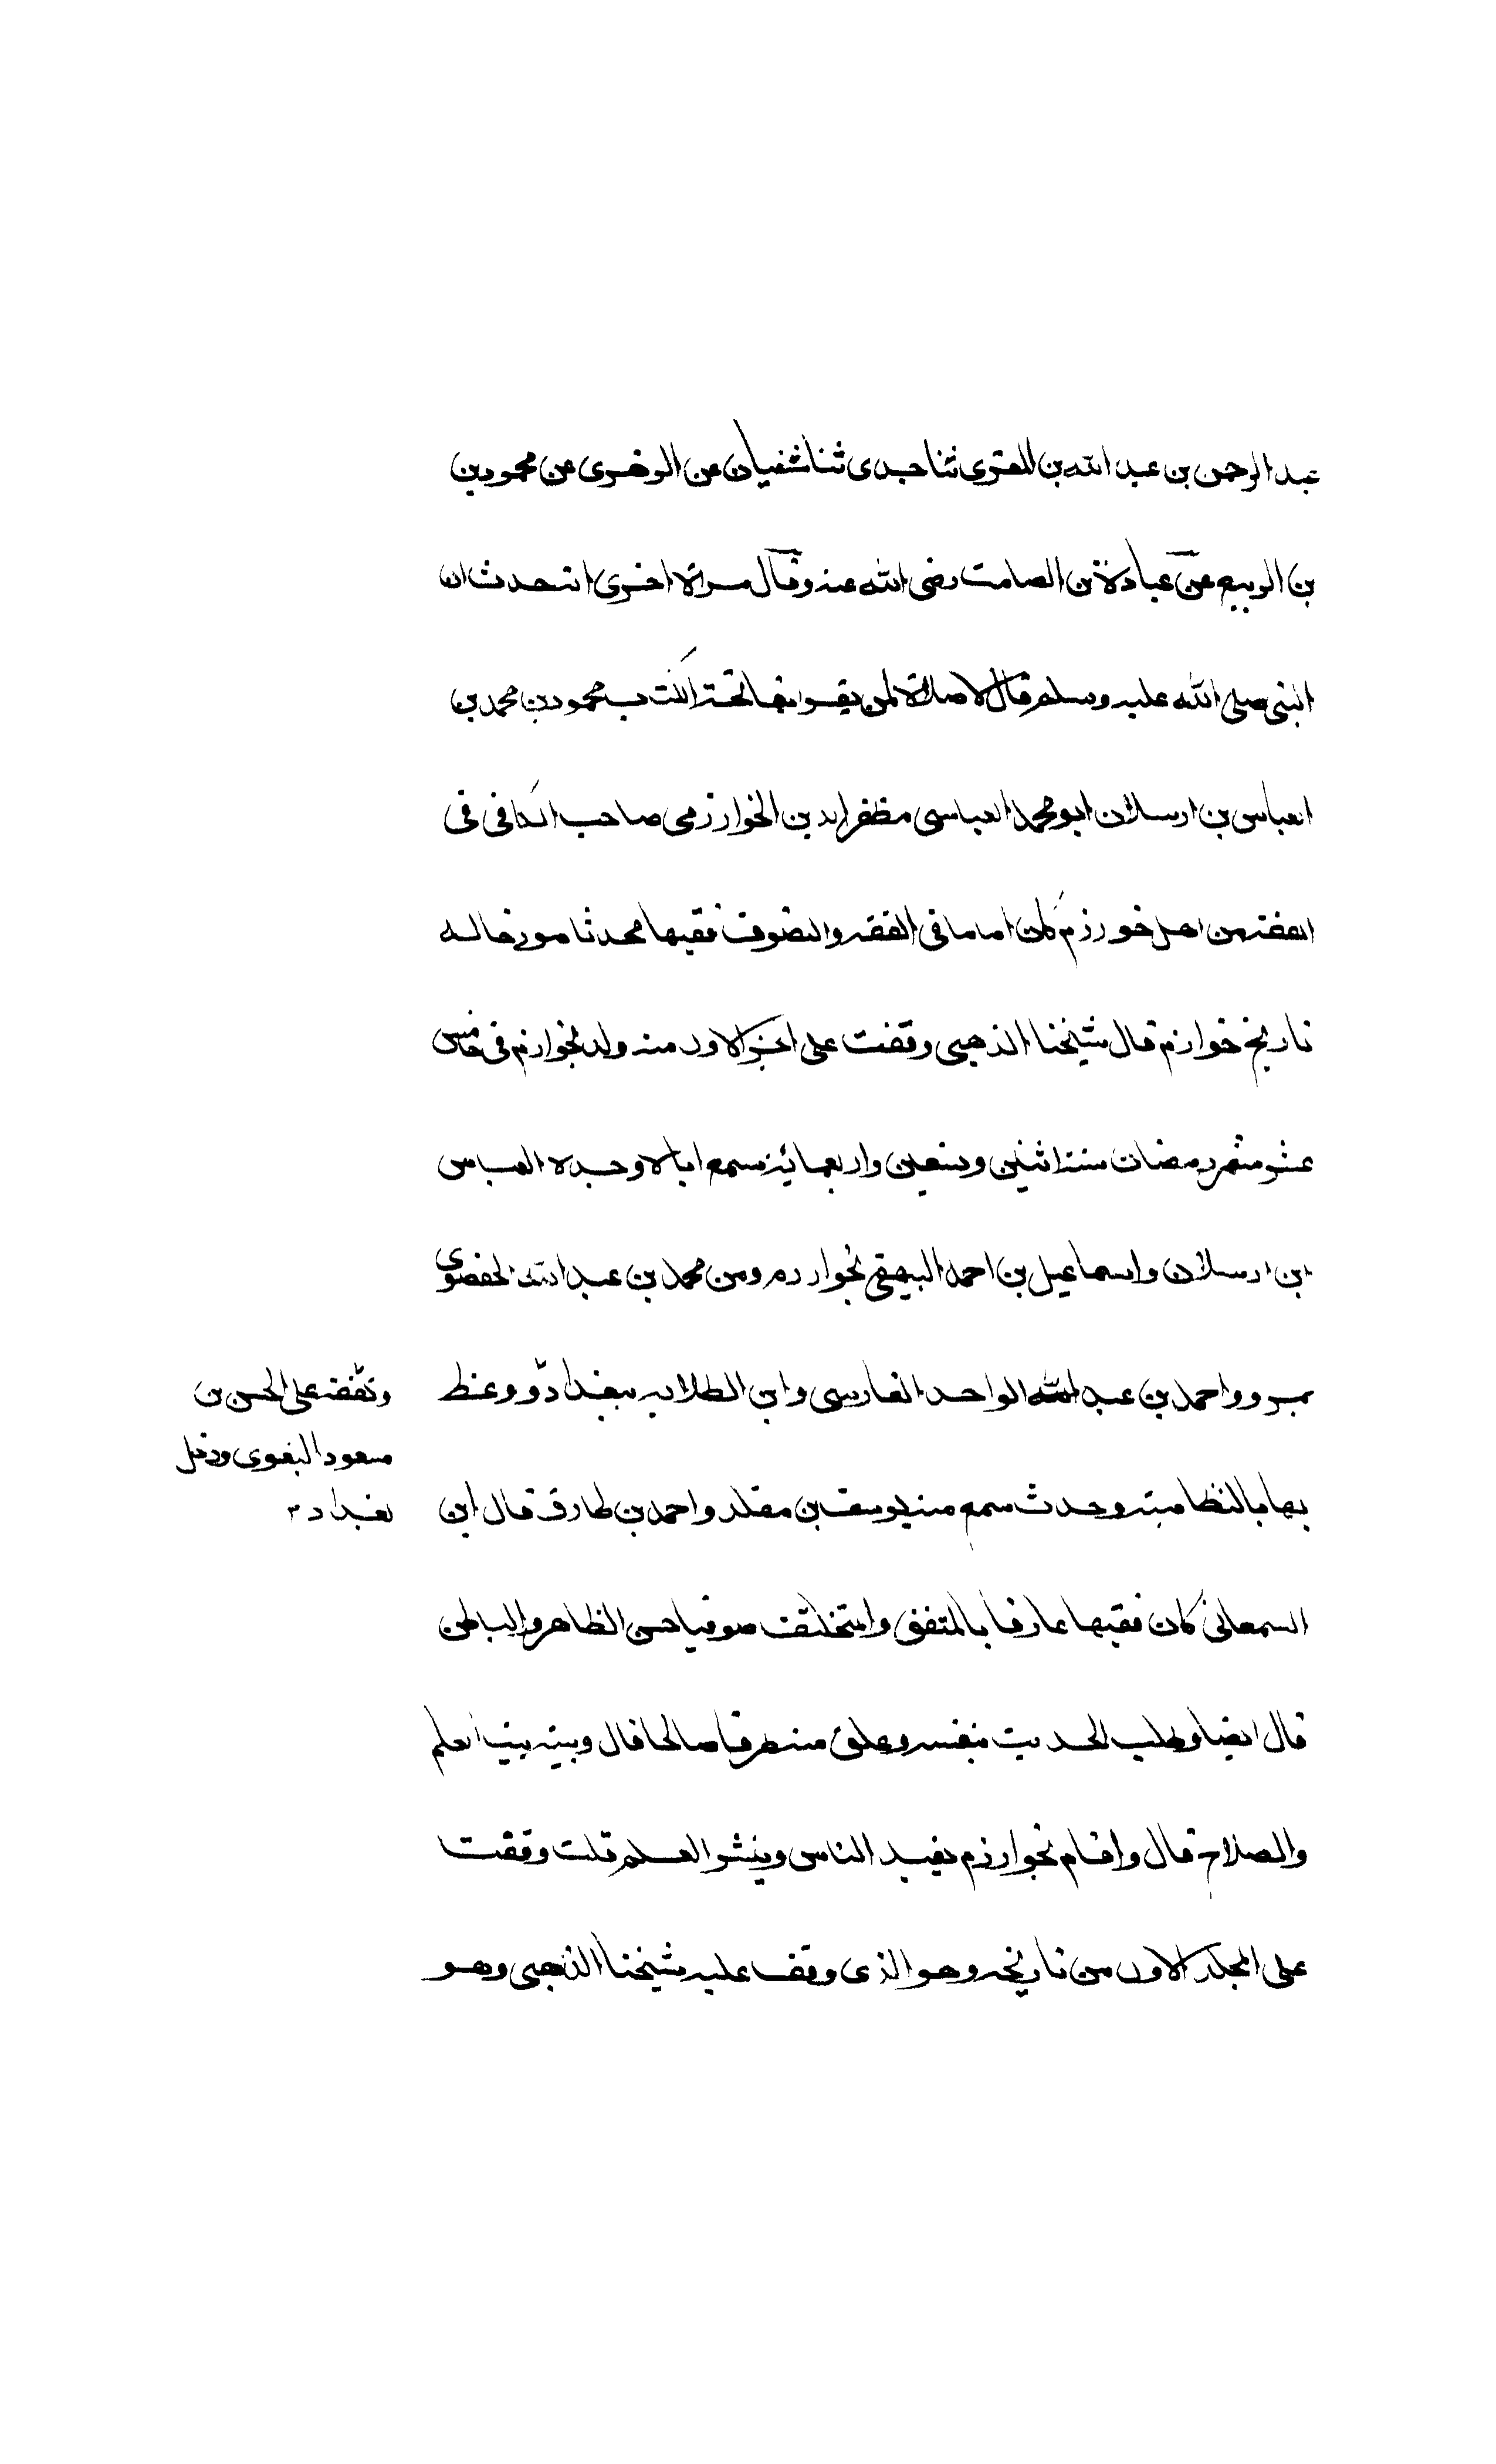 عبد الرحمن بن عبد الله بن المقري ثنا جدي ثنا سفيان عن الزهري عن محمود بن
بن الربيع عن عبادة بن الصامت رضى الله عنه وقال مرة اخرى ا تحدث ان
النبى صلى الله عليه وسلم قال لا صلاة لمن يقرا بفاتحة الكتب محمود بن محمد بن
العباس بن ارسلان ابو محمد العباسى مظفر الدين الخوارزمى صاحب الكافى فى
الفقه من اهل خورزم كان اماما فى الفقه والتصوف فقيها محدثا مورخا له
تاريخ خوارزم قال شيخنا الذهبى وقفت على الجز الاول منه ولد بخوارزم فى خامس
عشر شهر رمضان سنة اثنين وتسعين واربعمائة سمع اباه وجده العباس
ابن ارسلان واسماعيل بن احمد البيهقى بخوارزم ومن محمد بن عبد الله الحفصوى
بمرو واحمد بن عبد الله الواحد الفارسى وابن الطلابه ببغداد ووعظ
بها بالنظامية وحدث سمع منه يوسف بن مقلد واحمد بن طارق قال ابن
السمعانى كان فقيها عارفا بالمتفق والمختلف صوفيا حسن الظاهر والباطن
قال ايضا وطلب الحديث بنفسه وعلق منه طرفا صالحا قال وبيته بيت العلم
والصلاح قال واقام بخوارزم يفيد الناس وينشر العلم قلت وقفت
على المجلد الاول من تاريخه وهو الذى وقف عليه شيخنا الذهبى وهو
وتفقه على الحسن بن
مسعود البغوى ودخل
بغداد